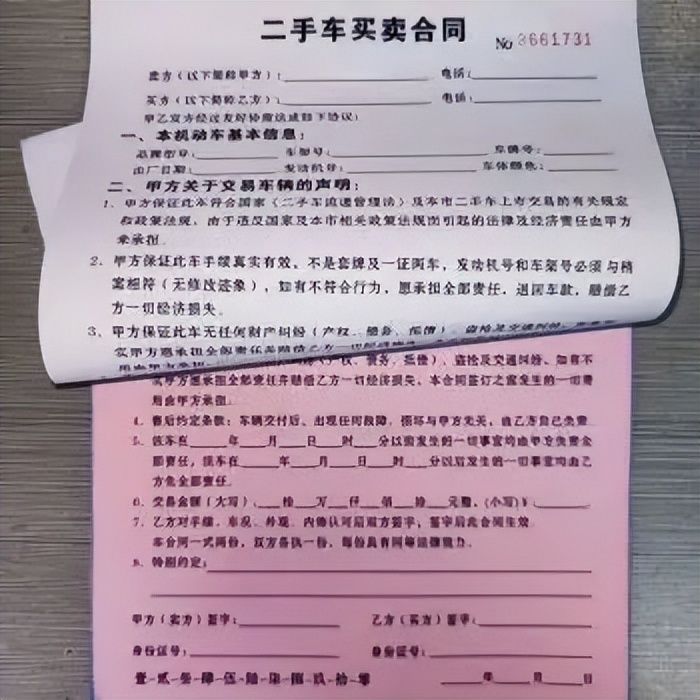 二手车买卖合同
No 3661731
卖方（以下简称甲方）： 电话：
买方（以下简称乙方）： 电话：
甲乙双方经过友好协商达成如下协议：
一、本机动车基本信息：
品牌型号： 车型号： 车牌号：
出厂日期： 发动机号： 车体颜色：
二、甲方关于交易车辆的声明：
1、甲方保证此车符合国家《二手车流通管理法》及本市二手车上市交易的有关规定
和政策法规，由于违反国家及本市相关政策法规而引起的法律及经济责任由甲方
来承担
2、甲方保证此车手续真实有效，不是套牌及一证两车，发动机号和车架号必须与档
案相符（无修改迹象），如有不符合行为，愿承担全部责任，退回车款，赔偿乙
方一切经济损失
3、甲方保证此车无任何财产纠纷（产权、债务、抵偿）、盗抢及交通纠纷、
实甲方愿承担全部责任并赔偿乙方一切经济损失
（产权、债务、抵偿）、盗抢及交通纠纷、如有不
实甲方愿承担全部责任并赔偿乙方一切经济损失、本合同签订之前发生的一切费
用由甲方承担
4、售后约定条款：车辆交付后、出现任何故障、损坏与甲方无关，由乙方自己负责
5、该车在 年 月 日 时 分以前发生的一切事宜均由甲方负责全
部责任，该车在 年 月 日 时 分以后发生的一切事宜均由乙
方负全部责任
6、交易金额（大写）： 拾 万 仟 佰 拾 元整，（小写）￥：
7、乙方对手续、车况、外观、内饰认可后双方签字；签字后此合同生效
本合同一式两份，双方各执一份，每份具有同等法律效力。
8、特别约定：
甲方（卖方）签字： 乙方（买方）签字：
身份证号： 身份证号：
壹-贰-叁-肆-伍-陆-柒-捌-玖-拾-零 年 月 日